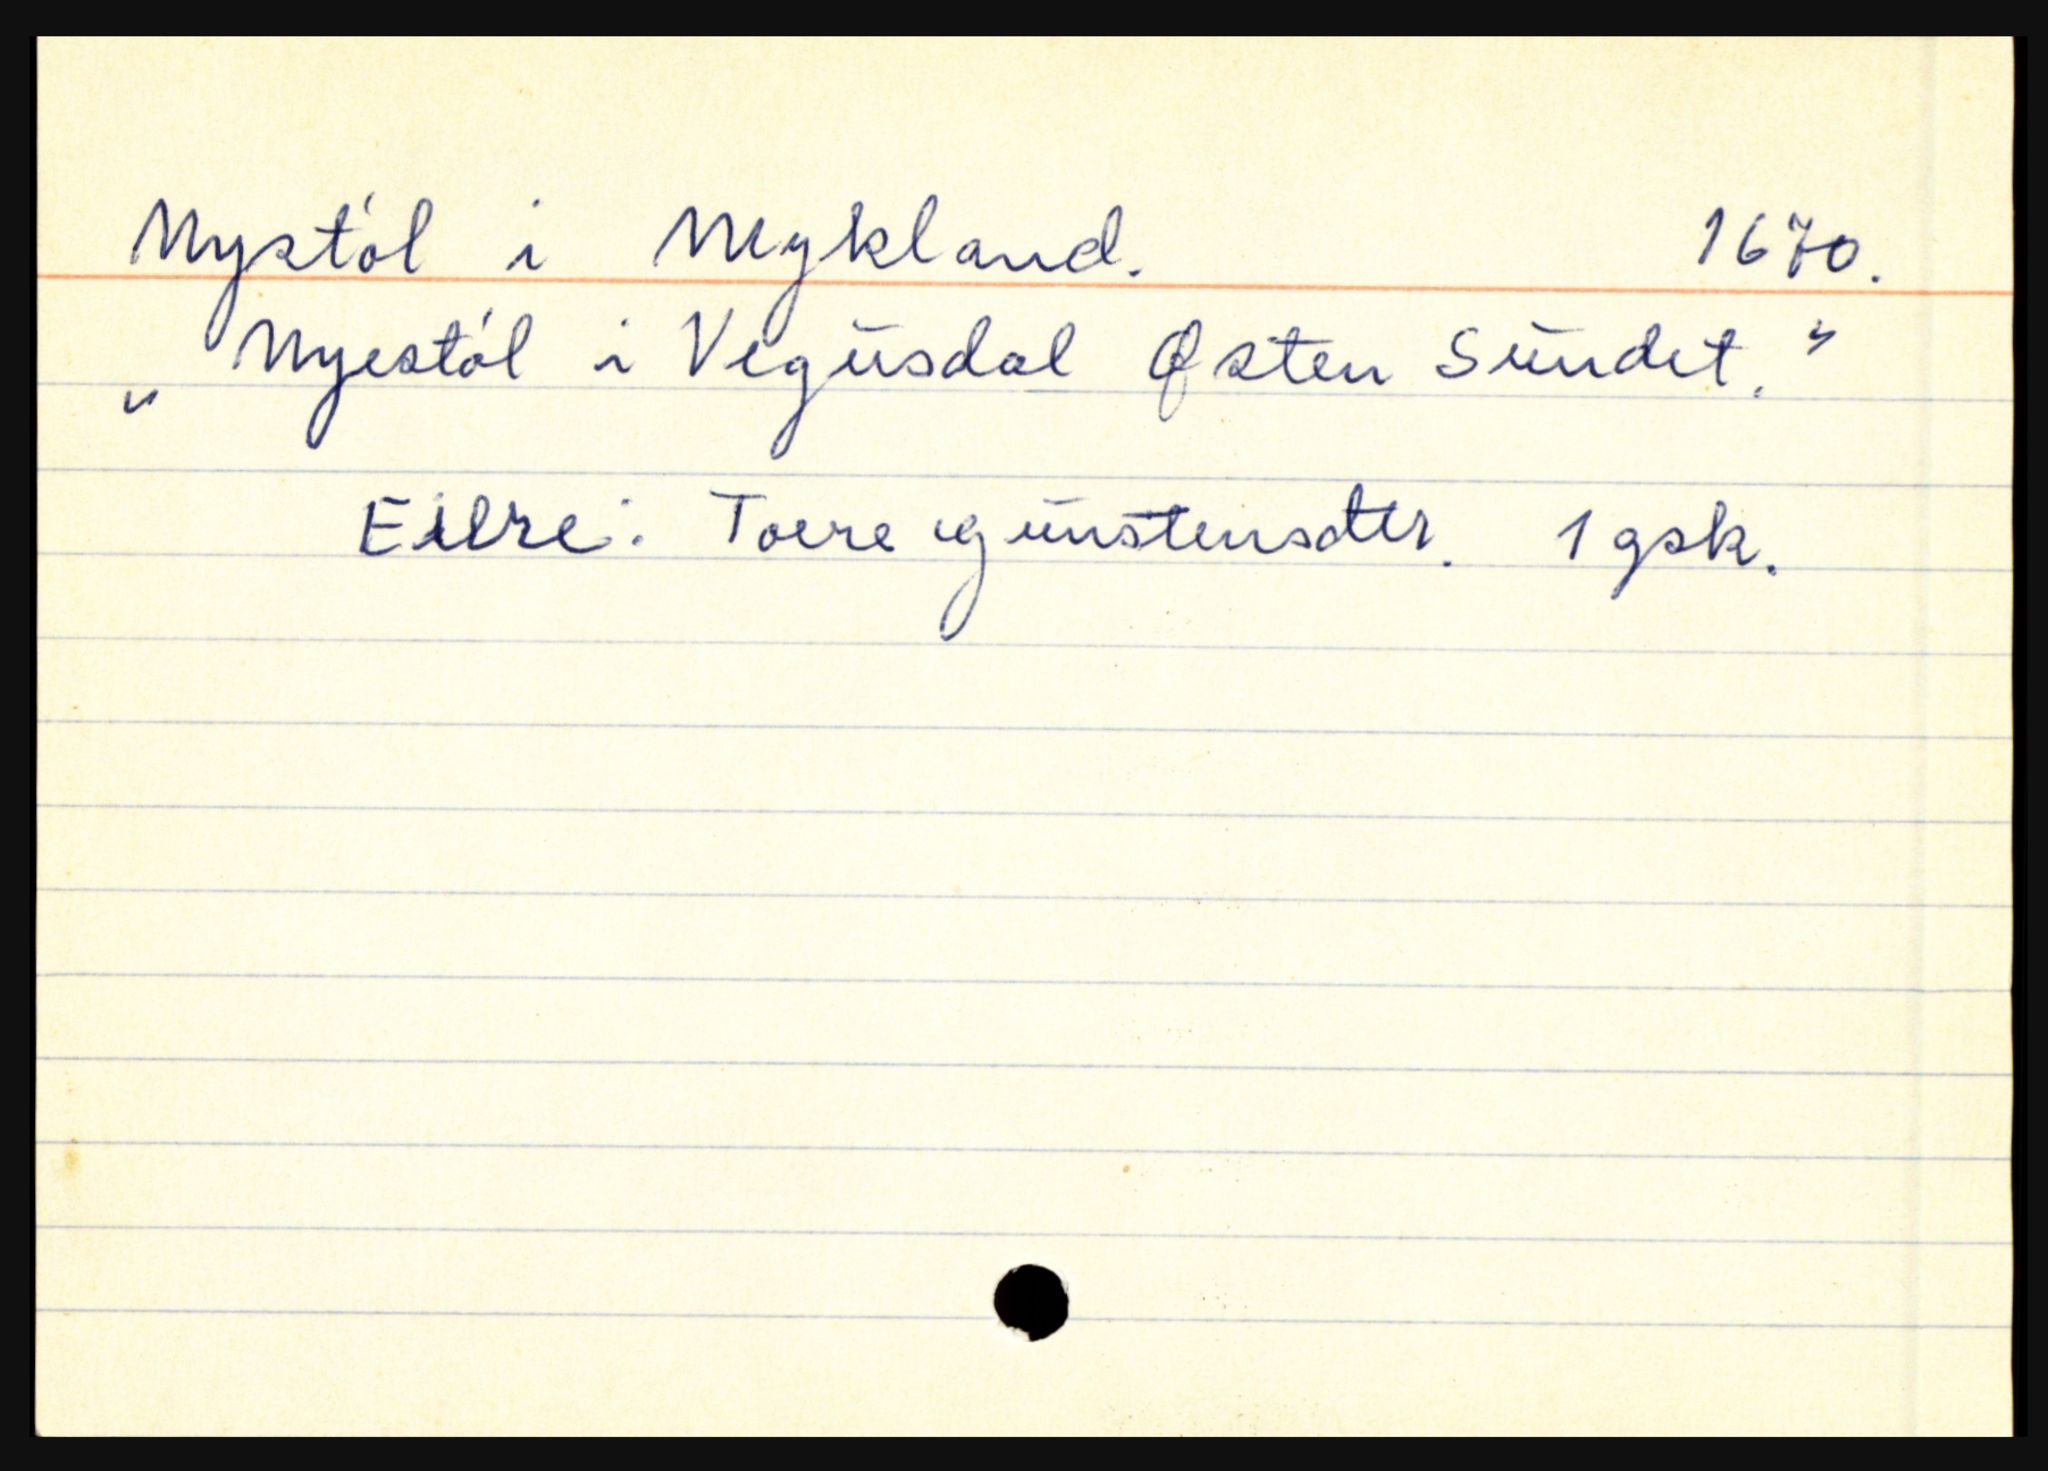 Nystól i Mykland. 1670.
„ Nyestól i Vegusdal Østen Sundet. "
Eiere: Toere gunstensdter. 1 gsk.